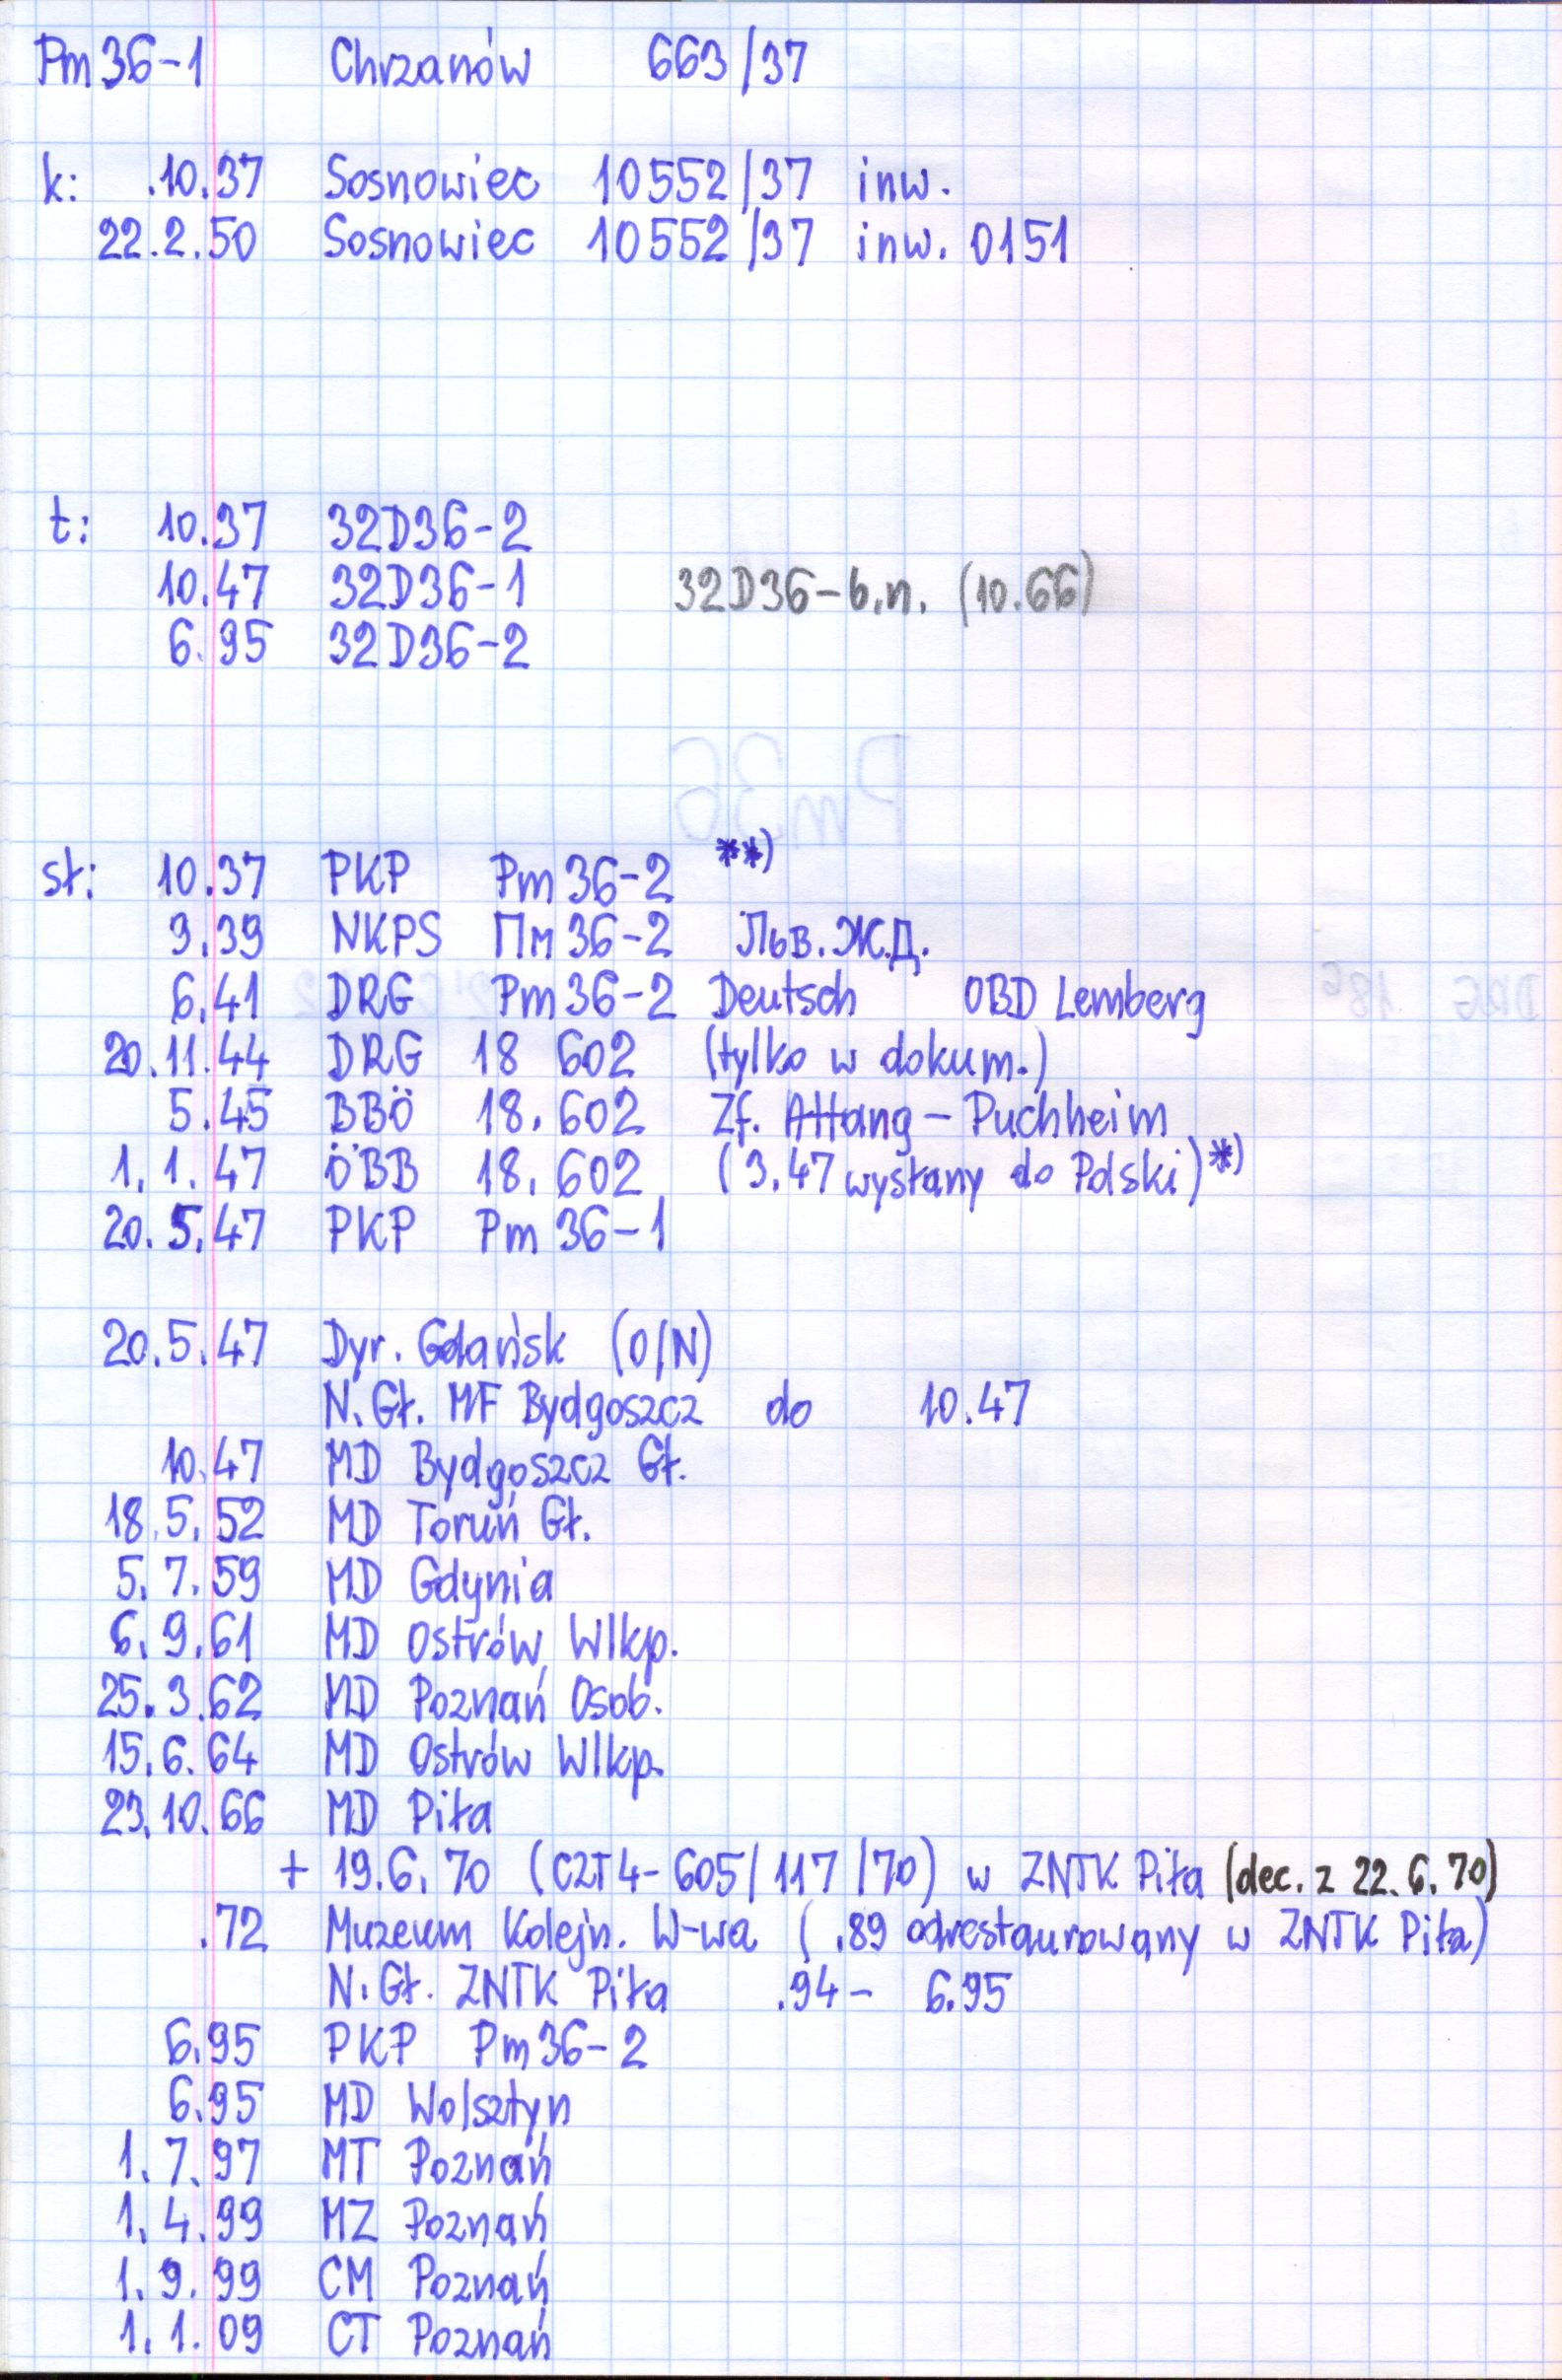 Pm36-1 Chrzanów 663/37
k: .10.37 Sosnowiec 10552/37 inw.
22.2.50 Sosnowiec 10552/37 inw. 0151
t: 10.37 32D36-2
10.47 32D36-1 32D36-b.n. (10.66)
6.95 32D36-2
Pm36
st: 10.37 PKP Pm36-2 **)
9.39 NKPS Пм36-2 Льв.Ж.Д.
6.41 DRG Pm36-2 Deutsch OBD Lemberg
20.11.44 DRG 18 602 (tylko w dokum.)
5.45 BBÖ 18.602 Zf. Attang-Puchheim
1.1.47 ÖBB 18.602 (3.47 wysłany do Polski)*)
20.5.47 PKP Pm36-1
20.5.47 Dyr. Gdańsk (O/N)
N.Gł. MF Bydgoszcz do 10.47
10.47 MD Bydgoszcz Gł.
18.5.52 MD Toruń Gł.
5.7.59 MD Gdynia
6.9.61 MD Ostrów Wlkp.
25.3.62 MD Poznań Osob.
15.6.64 MD Ostrów Wlkp.
23.10.66 MD Piła
+ 19.6.70 (CZT4-605/117/70) w ZNTK Piła (dec. z 22.6.70)
.72 Muzeum Kolejn. W-wa ( .89 odrestaurowany w ZNTK Piła)
N.Gł. ZNTK Piła .94- 6.95
6.95 PKP Pm36-2
6.95 MD Wolsztyn
1.7.97 MT Poznań
1.4.99 MZ Poznań
1.9.99 CM Poznań
1.1.09 CT Poznań